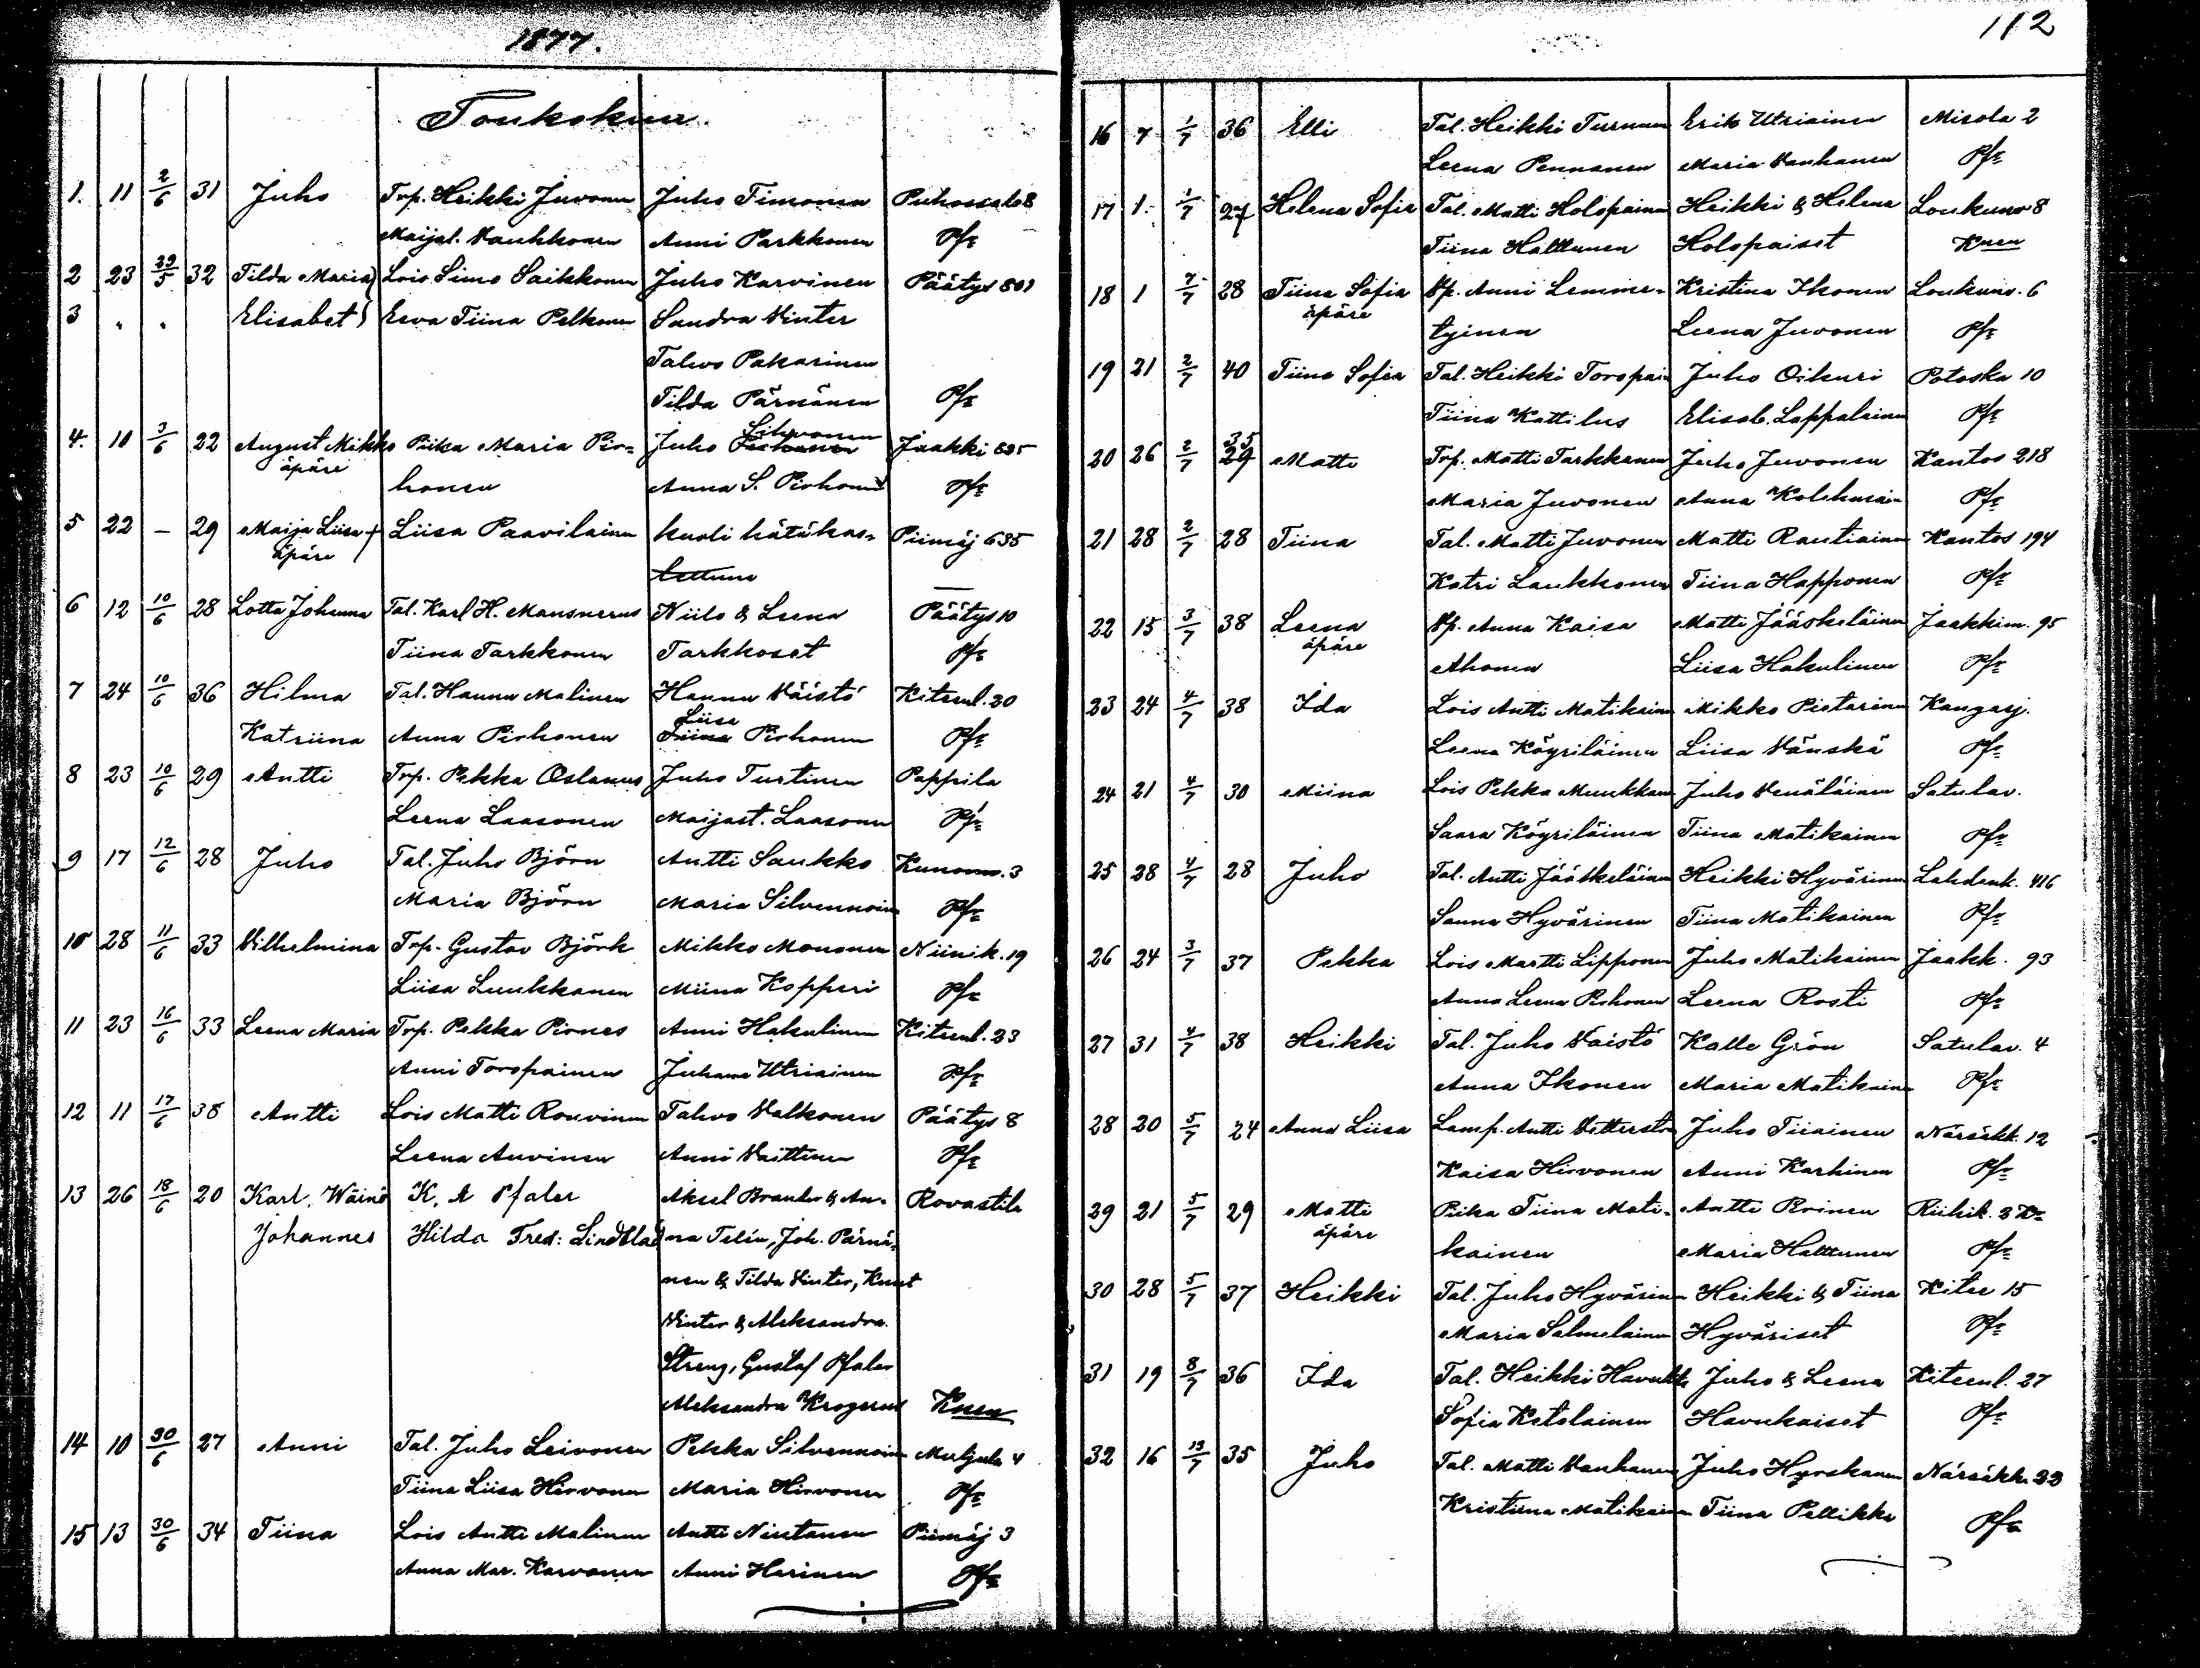 1877.
112
Toukokuu.
1. 11 2/6 31 Juho Trp. Heikki Juvonen Juho Timonen Puhossalo 8
Maijal. Vauhkonen Anni Parkkonen Pfr
2 23 29/5 32 Tilda Maria Lois Simo Saikkonen Juho Karvinen Päätys 801
3 " " Elisabet Eeva Tiina Pelkonen Sandra Vinter
Tahvo Pakarinen
Tilda Pärnänen Pfr
4. 10 3/6 22 August Mikko Piika Maria Pir= Juho Sihvonen Jaakki 635
äpäre honen Anna S. Pirhonen Pfr
5 22 — 29 Maija Liisa + Liisa Paavilainen kuoli hätäkas= Piimäj 635
äpäre tettuna —
6 12 10/6 28 Lotta Johanna Tal. Karl H. Mansnerus Niilo & Leena Päätys 10
Tiina Tarkkonen Tarkkoset Pfr
7 24 10/6 36 Hilma Tal. Hannu Malinen Hannu Väistö Kiteenl. 20
Katriina Anna Pirhonen Liisa Pirhonen Pfr
8 23 10/6 29 Antti Trp. Pekka Oslamus Juho Turtinen Pappila
Leena Laasonen Maijast. Laasonen Pfr
9 17 12/6 28 Juho Tal. Juho Björn Antti Saukko Kunonn. 3
Maria Björn Maria Silvennoin Pfr
10 28 11/6 33 Vilhelmina Trp. Gustav Björk Mikko Mononen Niinik. 19
Liisa Luukkanen Miina Kopperi Pfr
11 23 16/6 33 Leena Maria Trp. Pekka Piones Anni Hakulinen Kiteenl. 23
Anni Toropainen Juhana Utriainen Pfr
12 11 17/6 38 Antti Lois Matti Rouvinen Tahvo Valkonen Päätys 8
Leena Auvinen Anni Vaittinen Pfr
13 26 18/6 20 Karl. Wäinö K. A Pfaler Aksel Brander & An= Rovastila
Johannes Hilda Fred: Lindblad na Telén, Joh. Pärnä=
nen & Tilda Vinter, Knut
Vinter & Aleksandra
Streng, Gustaf Pfaler
Aleksandra Krogerus Knen
14 10 30/6 27 Anni Tal. Juho Leivonen Pekka Silvennoin Muljula 4
Tiina Liisa Hirvonen Maria Hirvonen Pfr
15 13 30/6 34 Tiina Lois Antti Malinen Antti Niutanen Piimäj 3
Anna Mar. Karvonen Anni Harinen Pfr
16 7 1/7 36 Elli Tal. Heikki Turunen Erik Utriainen Misola 2
Leena Pennanen Maria Vanhanen Pfr
17 1. 1/7 27 Helena Sofia Tal. Matti Holopainen Heikki & Helena Loukunv 8
Tiina Halttunen Holopaiset Knen
18 1 7/7 28 Tiina Sofia Np. Anni Lemme= Kristina Ikonen Loukunv. 6
äpäre tyinen Leena Juvonen Pfr
19 21 2/7 40 Tiina Sofia Tal. Heikki Toropain Juho Oikuri Potoska 10
Tiina Kattilus Elisab. Lappalainen Pfr
20 26 2/7 35 Matti Trp. Matti Tarkkanen Juho Juvonen Kantos 218
Maria Juvonen Anna Kolehmain Pfr
21 28 2/7 28 Tiina Tal. Matti Juvonen Matti Rautiainen Kantos 194
Katri Laukkonen Tiina Happonen Pfr
22 15 3/7 38 Leena Np. Anna Kaisa Matti Jääskeläinen Jaakkim. 95
äpäre Ahonen Liisa Hakulinen Pfr
23 24 4/7 38 Ida Lois Antti Matikainen Mikko Pietarinen Kangasj.
Leena Köyriläinen Liisa Vänskä Pfr
24 21 4/7 30 Miina Lois Pekka Muukkanen Juho Venäläinen Satulav.
Saara Köyriläinen Tiina Matikainen Pfr
25 28 4/7 28 Juho Tal. Antti Jääskeläinen Heikki Hyvärinen Lahdenk. 416
Sanna Hyvärinen Tiina Matikainen Pfr
26 24 3/7 37 Pekka Lois Martti Lipponen Juho Matikainen Jaakk. 93
Anna Leena Pirhonen Leena Rosti Pfr
27 31 4/7 38 Heikki Tal. Juho Väistö Kalle Grön Satulav. 4
Anna Ikonen Maria Matikainen Pfr
28 20 5/7 24 Anna Liisa Lamp. Antti Vetterstr Juho Tiiainen Närsäkk. 12
Kaisa Hirvonen Anni Karhinen Pfr
29 21 5/7 29 Matti Piika Tiina Mati= Antti Roinen Riihik. 2
äpäre kainen Maria Halttunen Pfr
30 28 5/7 37 Heikki Tal. Juho Hyvärinen Heikki & Tiina Kitee 15
Maria Salmelainen Hyväriset Pfr
31 19 8/7 36 Ida Tal. Heikki Havukka Juho & Leena Kiteenl. 27
Sofia Ketolainen Havukaiset Pfr
32 16 13/7 35 Juho Tal. Matti Vanhanen Juho Hyrskanen Närsäkk. 23
Kristiina Matikainen Tiina Pellikka Pfr